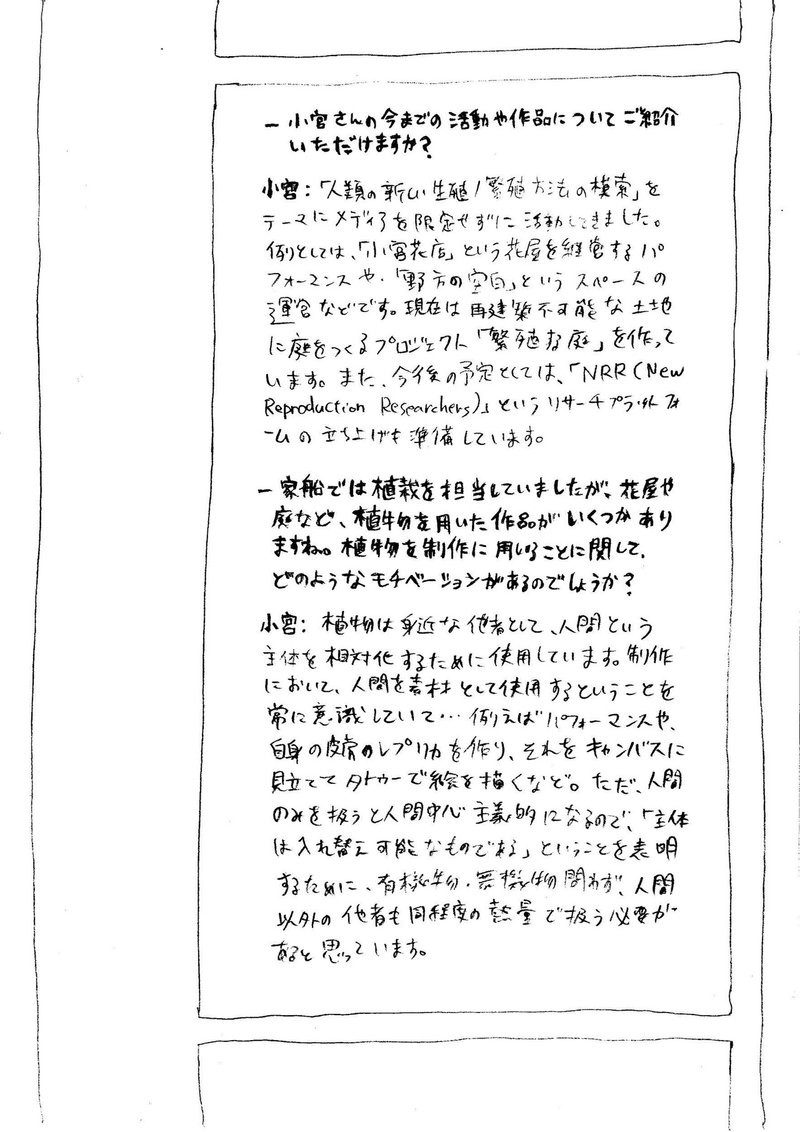 — 小宮さんの今までの活動や作品についてご紹介
いただけますか?
小宮:「人類の新しい生殖/繁殖方法の模索」を
テーマにメディアを限定せずに活動してきました。
例としては、「小宮花店」という花屋を経営するパ
フォーマンスや・「野方の空白」というスペースの
運営などです。現在は再建築不可能な土地
に庭をつくるプロジェクト「繁殖な庭」を作って
います。また、今後の予定としては、「NRR(New
Reproduction Researchers)」というリサーチプラットフォ
ームの立ち上げも準備しています。
— 家船では植栽を担当していましたが、花屋や
庭など、植物を用いた作品がいくつかあり
ますね。植物を制作に用いることに関して、
どのようなモチベーションがあるのでしょうか?
小宮: 植物は身近な他者として、人間という
主体を相対化するために使用しています。制作
において、人間を素材として使用するということを
常に意識していて…例えばパフォーマンスや、
自身の皮膚のレプリカを作り、それをキャンバスに
見立ててタトゥーで絵を描くなど。ただ、人間
のみを扱うと人間中心主義的になるので、「主体
は入れ替え可能なものである」ということを表明
するために、有機物・無機物問わず、人間
以外の他者も同程度の熱量で扱う必要が
あると思っています。